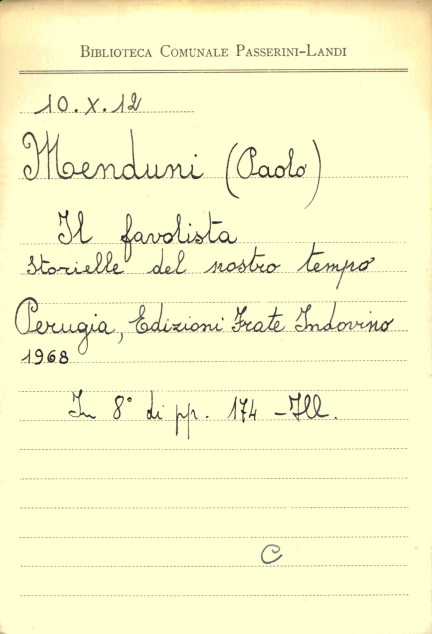 BIBLIOTECA COMUNALE PASSERINI-LANDI
10.X.12
Menduni (Paolo)
Il favolista
Storielle del nostro tempo
Perugia, Edizioni Frate Indovino
1968
In 8° di pp. 174 - Ill.
C